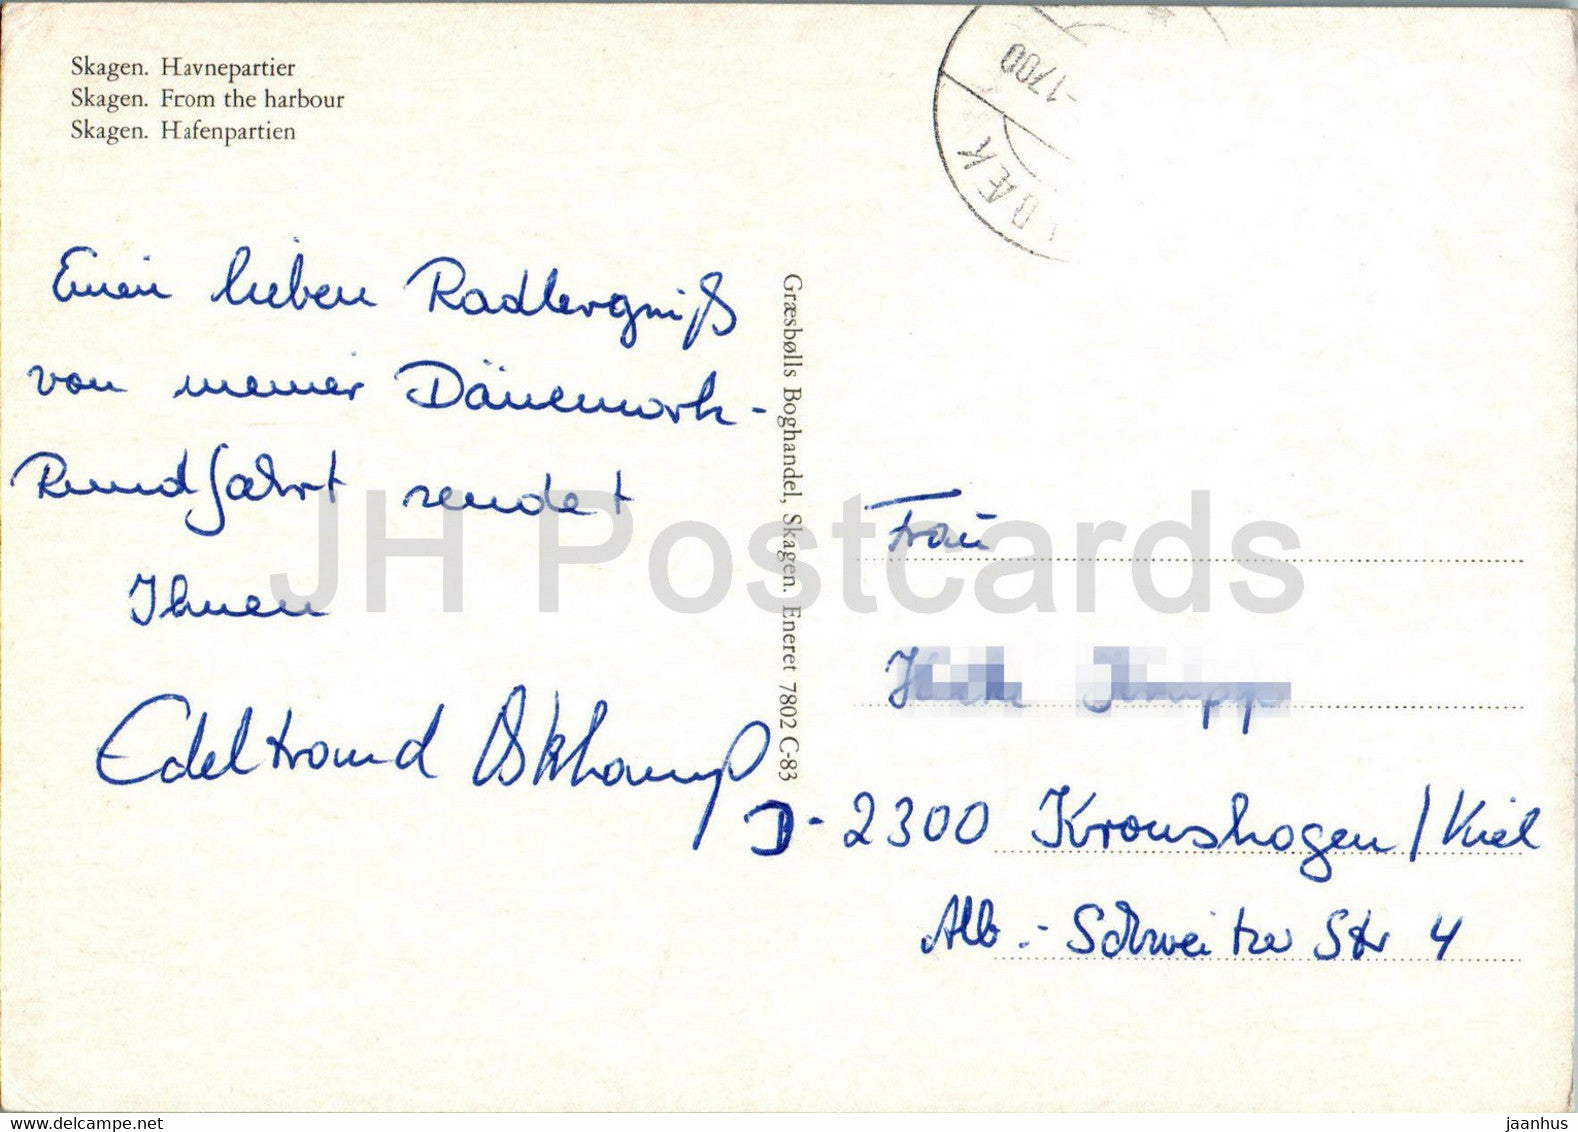 Skagen. Havnepartier
Skagen. From the harbour
Skagen. Hafenpartien
-1700
BÆK
Einen lieben Radlergruß
von meiner Dänemark-
Rundfahrt sendet
Ihnen
Edeltraud
Græsbølls Boghandel, Skagen. Eneret 7802 C-83
Frau
D-2300 Kronshagen/Kiel
Alb.-Schweitzer Str 4
JH Postcards
www.hippostcard.com/store/jaanhus